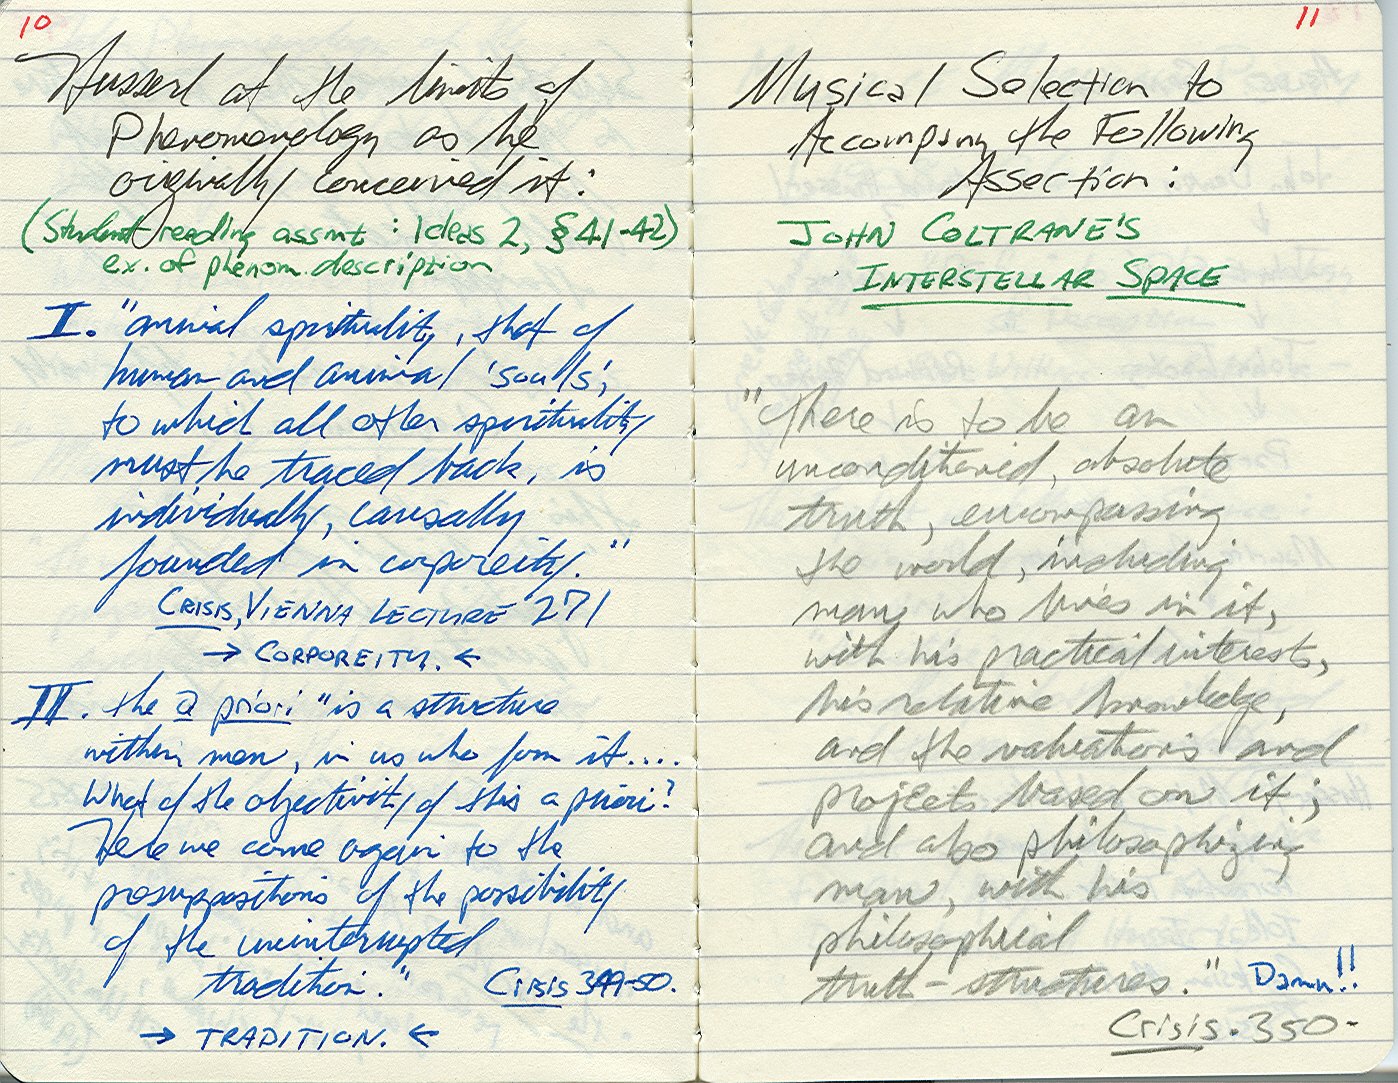 10
Husserl at the limits of
Phenomenology as he
originally conceived it:
(Student reading assmt: Ideas 2, §41-42)
ex. of phenom. description
I. "animal spirituality, that of
human and animal 'souls',
to which all other spirituality
must be traced back, is
individually, causally
founded in corporeity."
CRISIS, VIENNA LECTURE 271
→ CORPOREITY. ←
II. the a priori "is a structure
within man, in us who form it....
What of the objectivity of this a priori?
Here we come again to the
presuppositions of the possibility
of the uninterrupted
tradition." Crisis 349-50.
→ TRADITION. ←
11
Musical Selection to
Accompany the Following
Assection:
JOHN COLTRANE'S
INTERSTELLAR SPACE
"there is to be an
unconditioned, absolute
truth, encompassing
the world, including
man who lives in it,
with his practical interests,
his relative knowledge,
and the valuations and
projects based on it;
and also philosophizing
man, with his
philosophical
truth-structures." Damn!!
Crisis. 350-